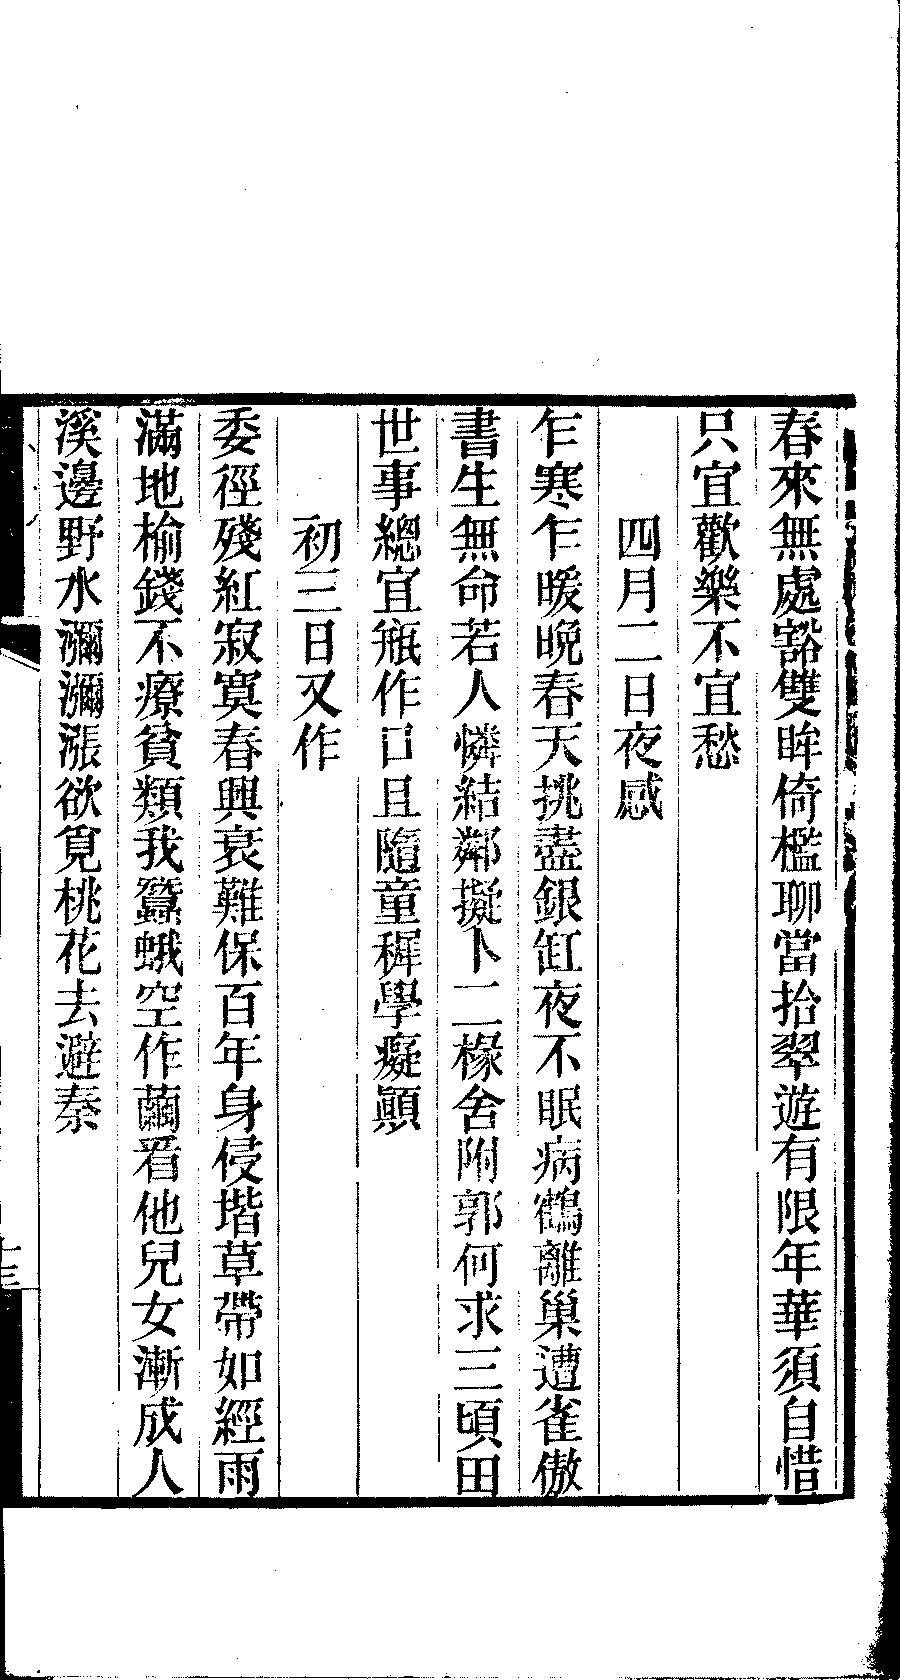 春來無處豁雙眸倚檻聊當拾翠遊有限年華須自惜
只宜歡樂不宜愁
四月二日夜感
乍寒乍暖晚春天挑盡銀缸夜不眠病鶴離巢遭雀傲
書生無命若人憐結鄰擬卜二椽舍附郭何求三頃田
世事總宜瓶作口且隨童穉學癡顚
初三日又作
委徑殘紅寂寞春興衰難保百年身侵堦草帶如經雨
滿地榆錢不療貧類我蠶蛾空作繭看他兒女漸成人
溪邊野水瀰瀰漲欲覓桃花去避秦
十三